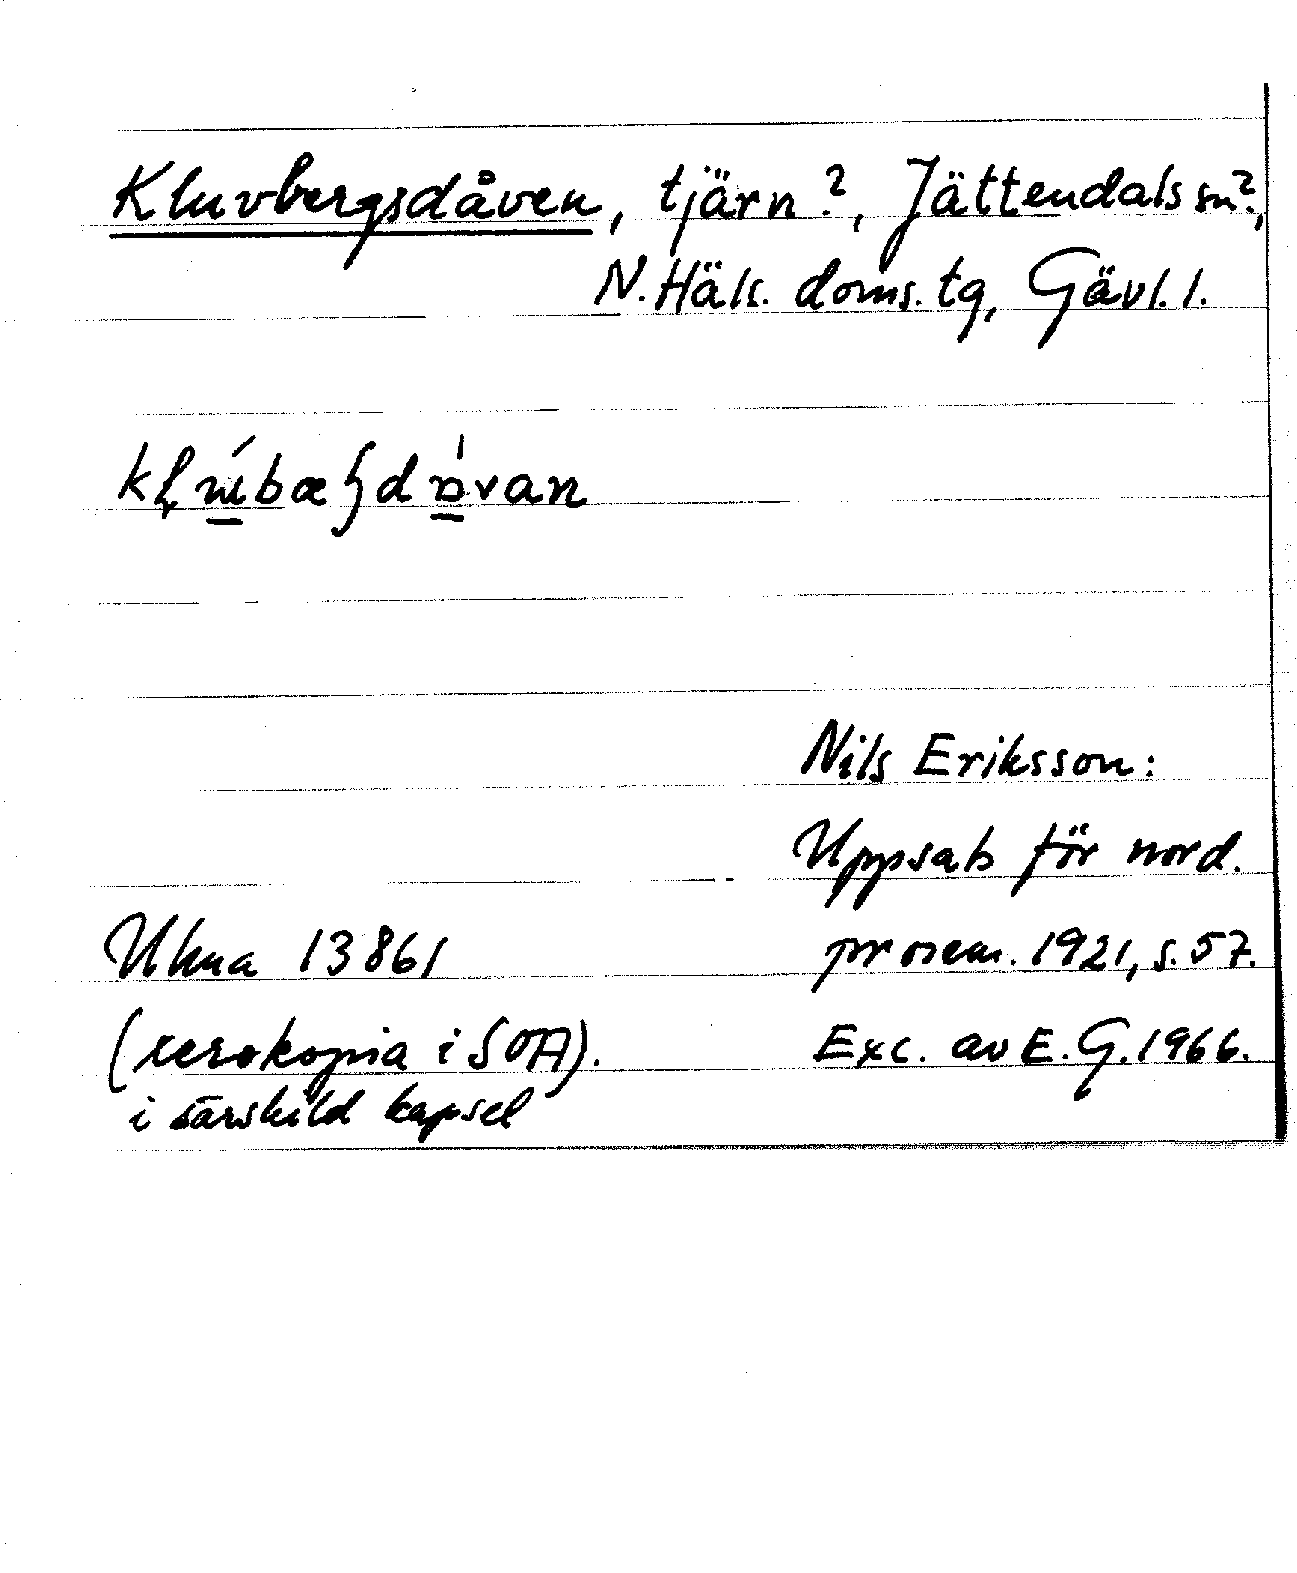 Kluvbergsdåven, tjärn?, Jättendals sn?,
N. Häls. doms. tg, Gävl. l.
Nils Eriksson:
Uppsats för nord.
Ukna 13861
prosem. 1921, s. 57.
(xerokopia i SOA).
Exc. av E. G. 1966.
i särskild kapsel